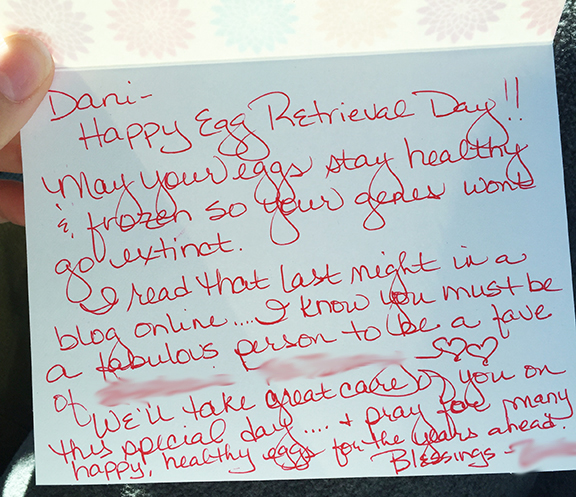 Dani-
Happy Egg Retrieval Day!!
May your eggs stay healthy
& frozen so your genes wont
go extinct.
I read that last night in a
blog online.... I know you must be
a fabulous person to be a fave
of
We'll take great care of you on
this special day.... & pray for many
happy, healthy eggs for the years ahead.
Blessings -